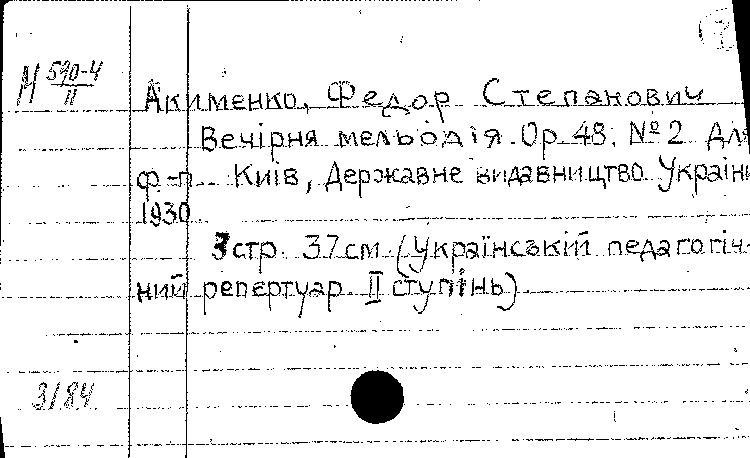 М 590-4
II
Акименко, Федор Степанович
Вечірня мельодія. Op. 48. № 2 Для
ф-п. Київ, Державне видавництво України
1930
3 стр. 37 см. (Український педагогіч-
ний репертуар II ступінь).
3184